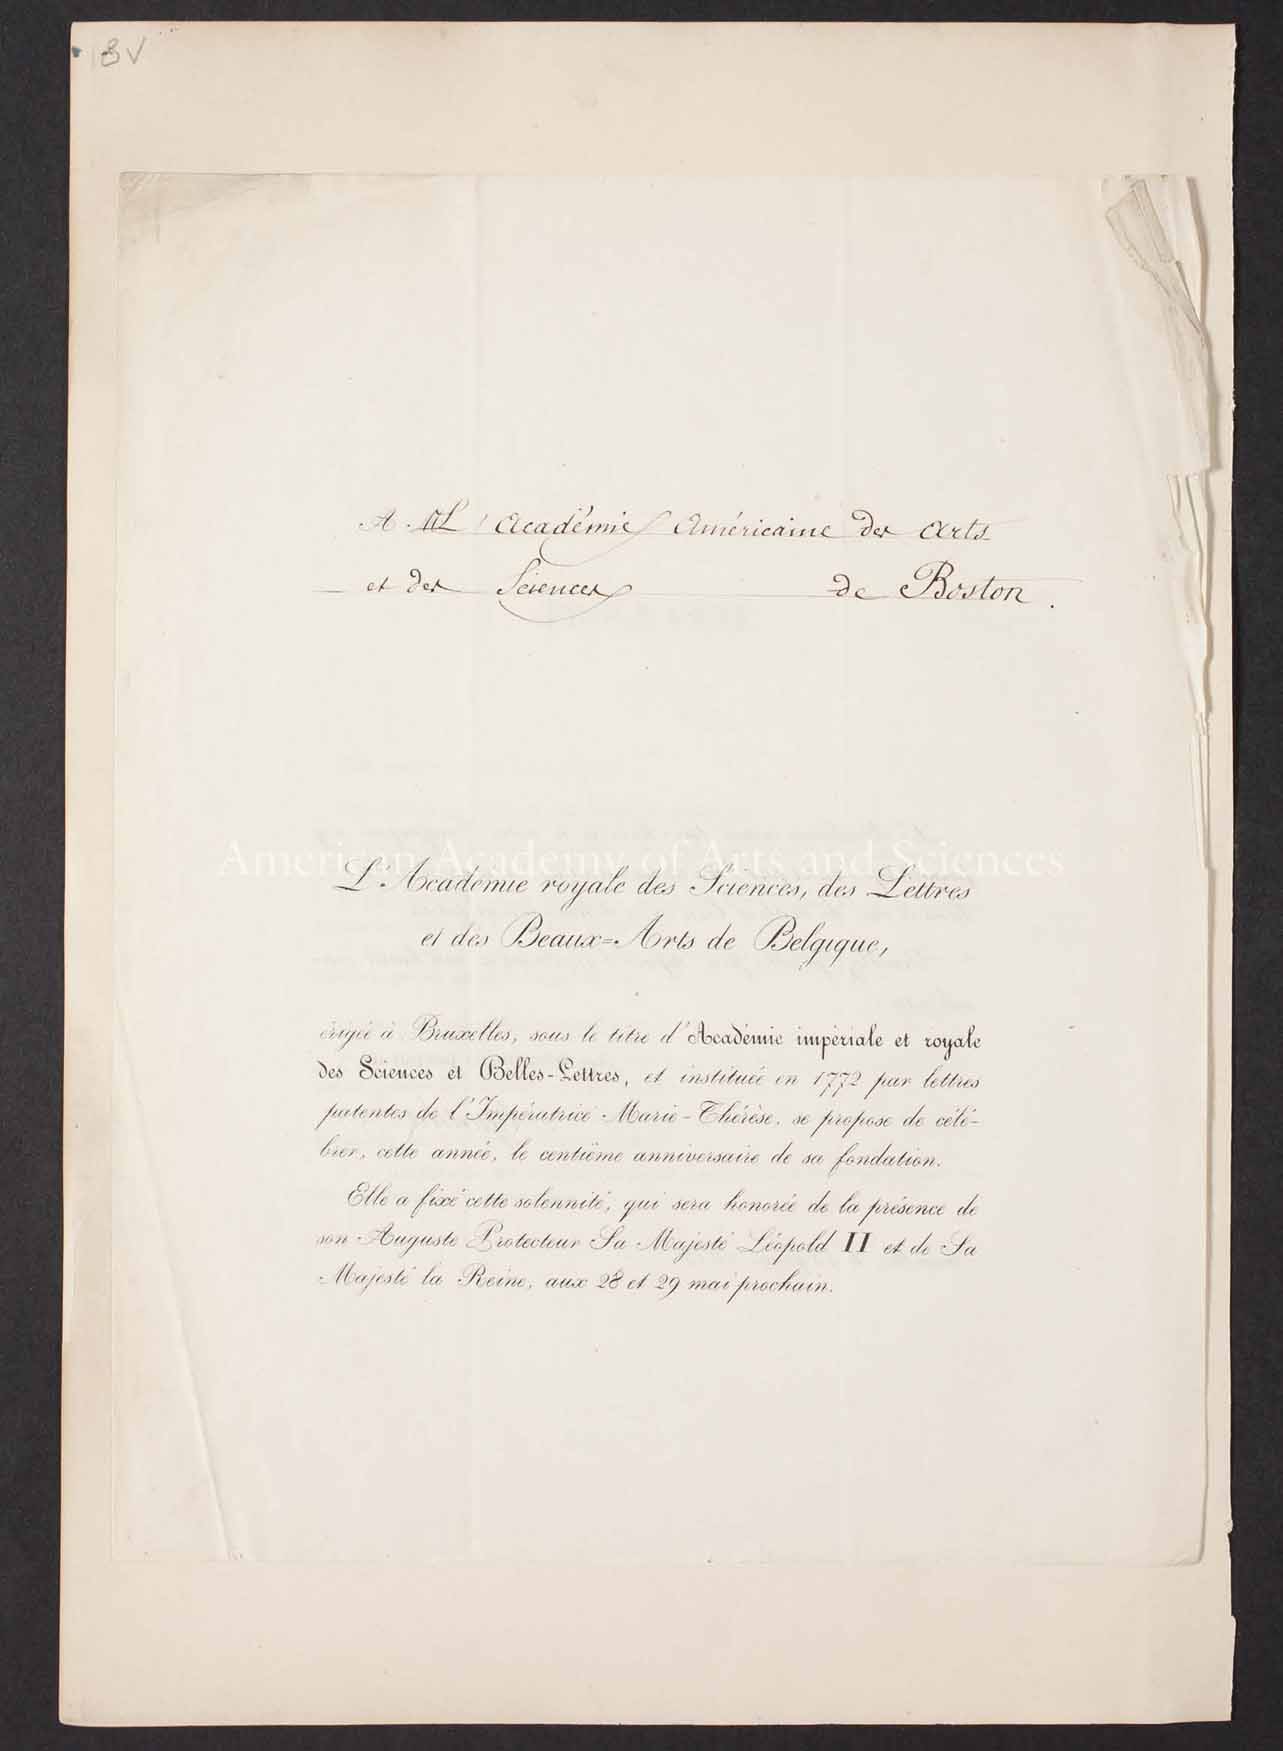 BV
A L'Académie Américaine des Arts
et des Sciences de Boston.
American Academy of Arts and Sciences
L'Académie royale des Sciences, des Lettres
et des Beaux=Arts de Belgique,
érigée à Bruxelles, sous le titre d'Académie impériale et royale
des Sciences et Belles-Lettres, et instituée en 1772 par lettres
patentes de l'Impératrice Marie-Thérèse, se propose de célé-
brer, cette année, le centième anniversaire de sa fondation.
Elle a fixé cette solennité, qui sera honorée de la présence de
son Auguste Protecteur Sa Majesté Léopold II et de Sa
Majesté la Reine, aux 28 et 29 mai prochain.